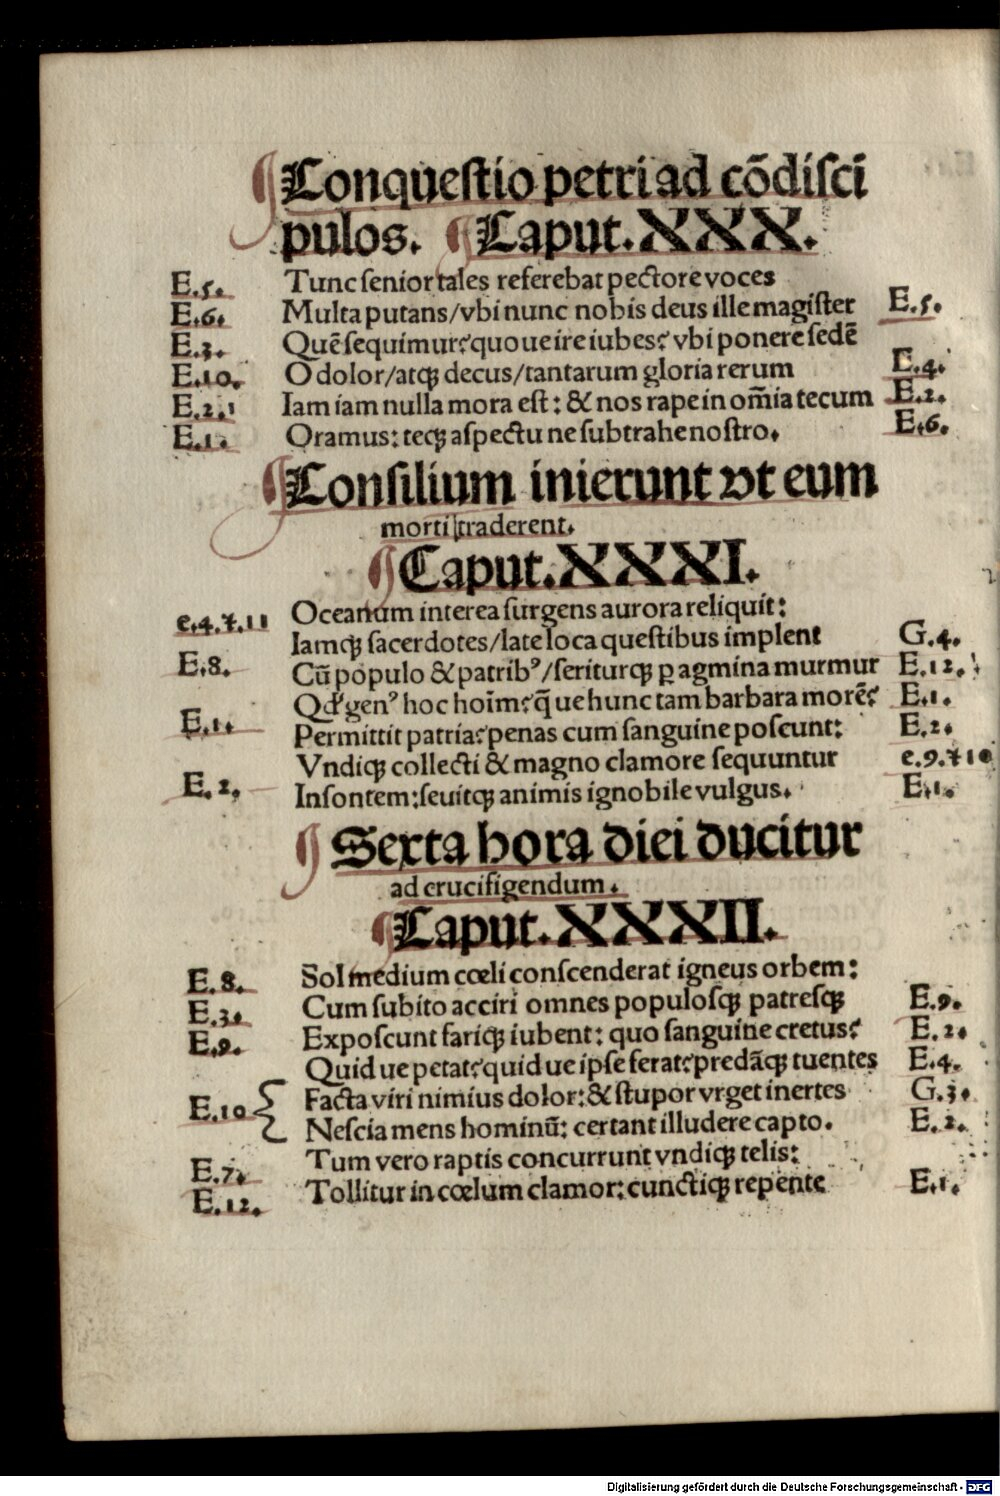 ¶Conquestio petri ad cōdisci
pulos. ¶Caput.XXX.
E.5. Tunc senior tales referebat pectore voces
E.6. Multa putans/vbi nunc nobis deus ille magister E.5.
E.3. Quē sequimur? quo ue ire iubes? vbi ponere sedē
E.10. O dolor/atqꝫ decus/tantarum gloria rerum E.4.
E.2. Iam iam nulla mora est: & nos rape in om̄ia tecum E.2.
E.1. Oramus: teqꝫ aspectu ne subtrahe nostro. E.6.
¶Consilium inierunt vt eum
morti traderent.
¶Caput.XXXI.
e.4.⁊.11 Oceanum interea surgens aurora reliquit:
Iamqꝫ sacerdotes/late loca questibus implent G.4.
E.8. Cū populo & patribꝰ/seriturqꝫ ꝑ agmina murmur E.12.
Qd' genꝰ hoc hoīm? q̄ ue hunc tam barbara morē? E.1.
E.1. Permittit patria? penas cum sanguine poscunt: E.2.
Vndiqꝫ collecti & magno clamore sequuntur e.9.⁊10
E.2. Insontem: seuitqꝫ animis ignobile vulgus. E.1.
¶Sexta hora diei ducitur
ad crucifigendum.
¶Caput.XXXII.
E.8. Sol medium cœli conscenderat igneus orbem:
E.3. Cum subito acciri omnes populosqꝫ patresqꝫ E.9.
E.9. Exposcunt fariqꝫ iubent: quo sanguine cretus? E.2.
Quid ue petat? quid ue ipse ferat? predāqꝫ tuentes E.4.
E.10 Facta viri nimius dolor: & stupor vrget inertes G.3.
Nescia mens hominū: certant illudere capto. E.2.
E.7. Tum vero raptis concurrunt vndiqꝫ telis:
E.12. Tollitur in cœlum clamor: cunctiqꝫ repente E.1.
Digitalisierung gefördert durch die Deutsche Forschungsgemeinschaft - DFG